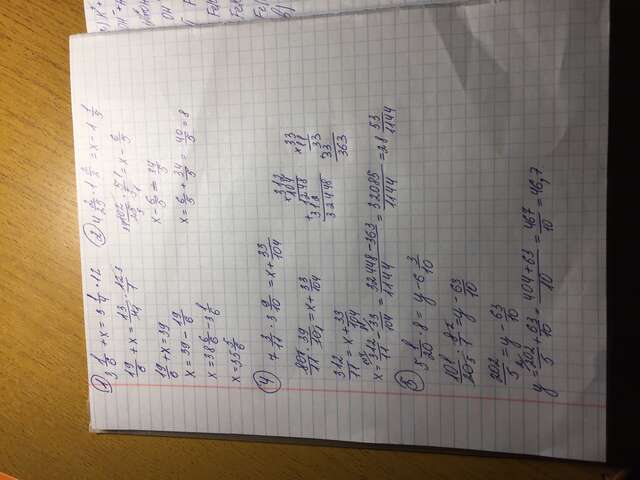 1) 3 1/6 + x = 3 1/4 · 12
19/6 + x = 13/4 · 12/1
19/6 + x = 39
x = 39 - 19/6
x = 38 6/6 - 3 1/6
x = 35 5/6
2) 4 2/25 · 1 2/3 = x - 1 1/5
102/25 · 5/3 = x - 6/5
x - 6/5 = 34/5
x = 6/5 + 34/5 = 40/5 = 8
4) 7 3/11 · 3 9/10 = x + 33/104
80/11 · 39/10 = x + 33/104
312/11 = x + 33/104
x = 312/11 - 33/104 = 32448-363/1144 = 32085/1144 = 28 53/1144
312
×104
1248
+312
32448
33
×11
33
33
363
5) 5 1/20 · 8 = y - 6 3/10
101/20 · 8/1 = y - 63/10
202/5 = y - 63/10
y = 202/5 + 63/10 = 404+63/10 = 467/10 = 46,7